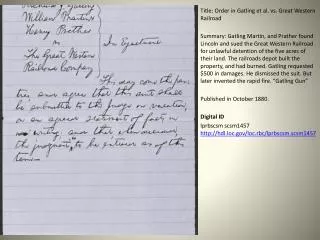 Richard J. Gatling
William Martin
Henry Prather
vs
The Great Western
Railroad Company
In Ejectment
This day came the par
ties and agree that this suit shall
be submitted to the judge in vacation,
or an agreed statement of facts, in
writing, and that when decided,
the judgment to be entered as of this
term.
Title: Order in Gatling et al. vs. Great Western
Railroad
Summary: Gatling Martin, and Prather found
Lincoln and sued the Great Western Railroad
for unlawful detention of the five acres of
their land. The railroads depot built the
property, and had burned. Gatling requested
$500 in damages. He dismissed the suit. But
later invented the rapid fire. "Gatling Gun"
Published in October 1880.
Digital ID
lprbscsm scsm1457
http://hdl.loc.gov/loc.rbc/lprbscsm.scsm1457